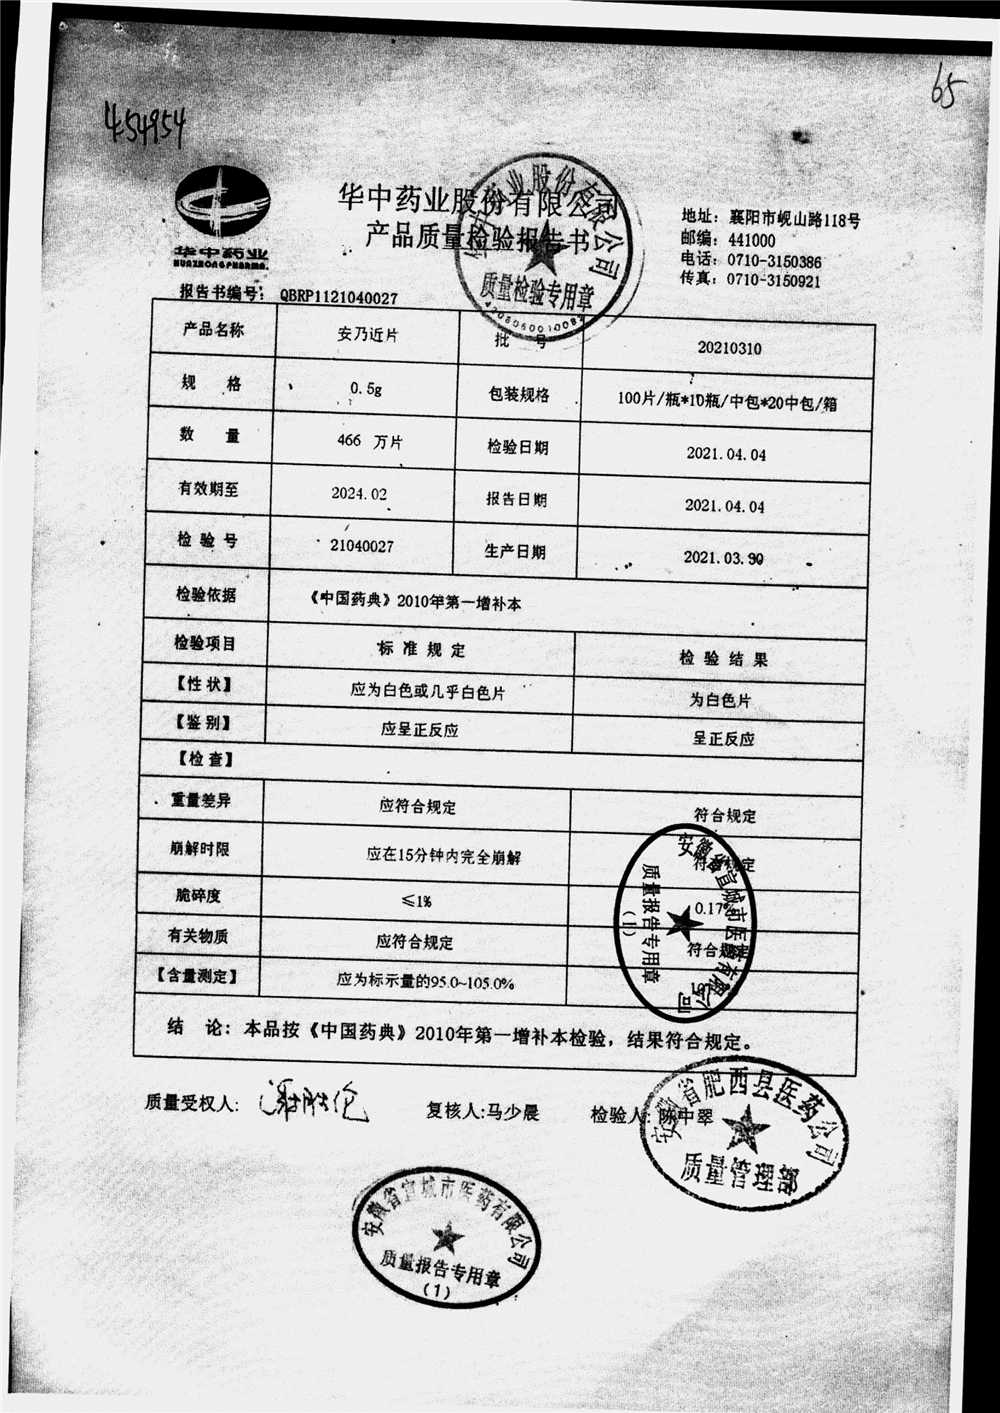 65
454954
华中药业
HUAZHONGPHARMA.
华中药业股份有限公司
产品质量检验报告书
地址：襄阳市岘山路118号
邮编：441000
电话：0710-3150386
传真：0710-3150921
质量检验专用章
报告书编号： QBRP1121040027
产品名称 安乃近片 批 号 20210310
规 格 0.5g 包装规格 100片/瓶*10瓶/中包*20中包/箱
数 量 466 万片 检验日期 2021.04.04
有效期至 2024.02 报告日期 2021.04.04
检 验 号 21040027 生产日期 2021.03.
检验依据 《中国药典》2010年第一增补本
检验项目 标 准 规 定 检 验 结 果
【性 状】 应为白色或几乎白色片 为白色片
【鉴 别】 应呈正反应 呈正反应
【检 查】
重量差异 应符合规定 符合规定
崩解时限 应在15分钟内完全崩解 符合规定
脆碎度 ≤1% 0.17%
有关物质 应符合规定 符合规定
【含量测定】 应为标示量的95.0~105.0%
安徽省宣城市医药有限公司
质量报告专用章
(1)
结 论：本品按《中国药典》2010年第一增补本检验，结果符合规定。
质量受权人： 复核人:马少晨 检验人: 陈中翠
安徽省肥西县医药公司
质量管理部
安徽省宣城市医药有限公司
质量报告专用章
(1)